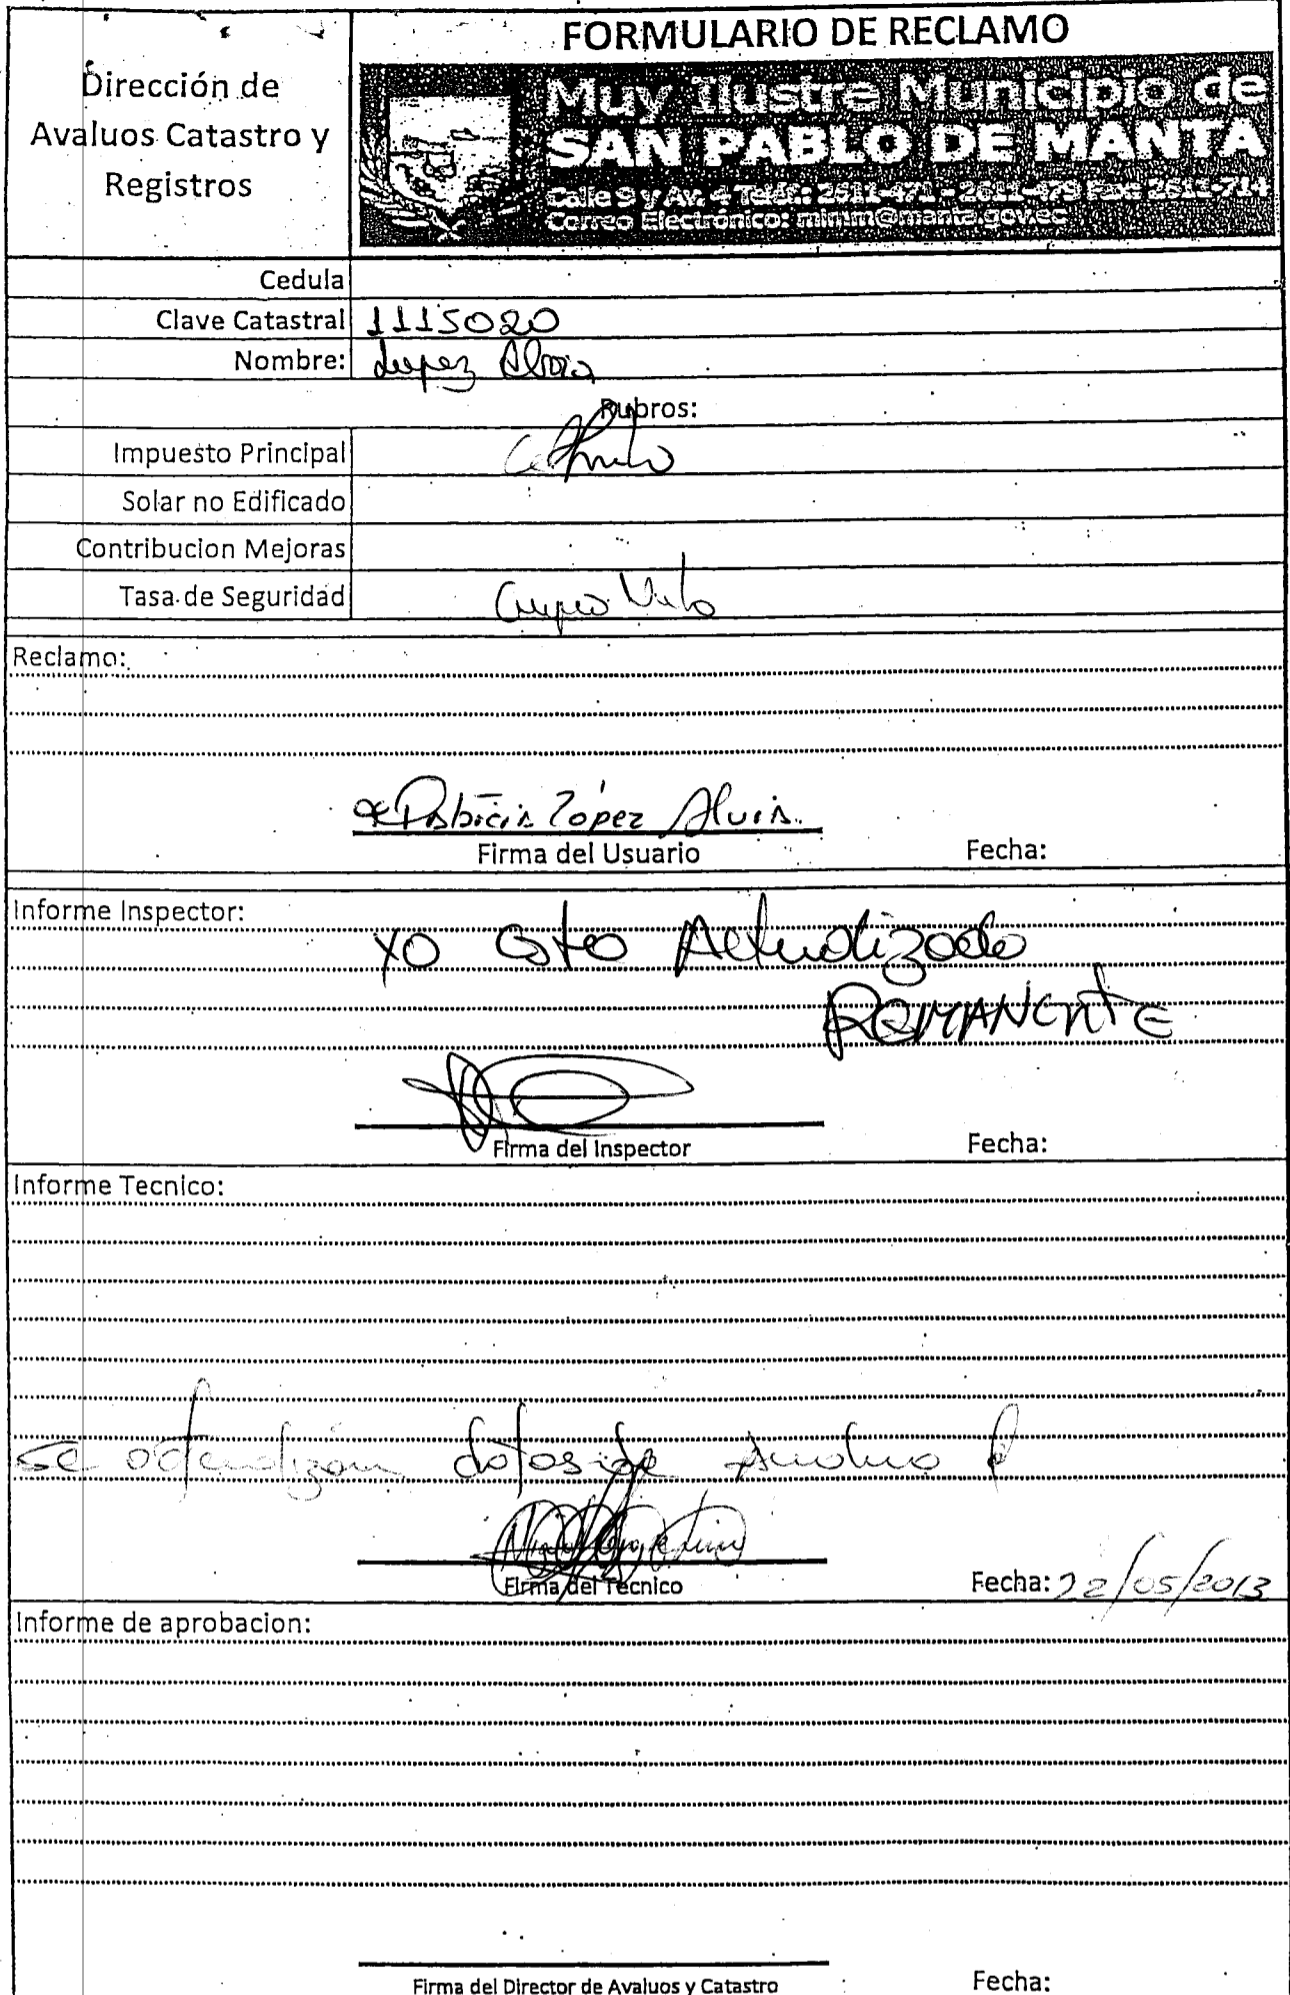 FORMULARIO DE RECLAMO
Dirección de
Avaluos Catastro y
Registros
Muy Ilustre Municipio de
SAN PABLO DE MANTA
Calle 9 y Av. 4 Telf.: 2611-471 - 2611-479 Fax 2611-714
Correo Electrónico: mimm@manta.gov.ec
Cedula
Clave Catastral 1115020
Nombre: Lopez Alvia
Rubros:
Impuesto Principal
Solar no Edificado
Contribucion Mejoras
Tasa de Seguridad
Reclamo:
Patricia López Alvia
Firma del Usuario Fecha:
Informe Inspector:
Ya esta Actualizado
REMANENTE
Firma del Inspector Fecha:
Informe Tecnico:
se actualizan datos de
Firma del Tecnico Fecha: 22/05/2013
Informe de aprobacion:
Firma del Director de Avaluos y Catastro Fecha: